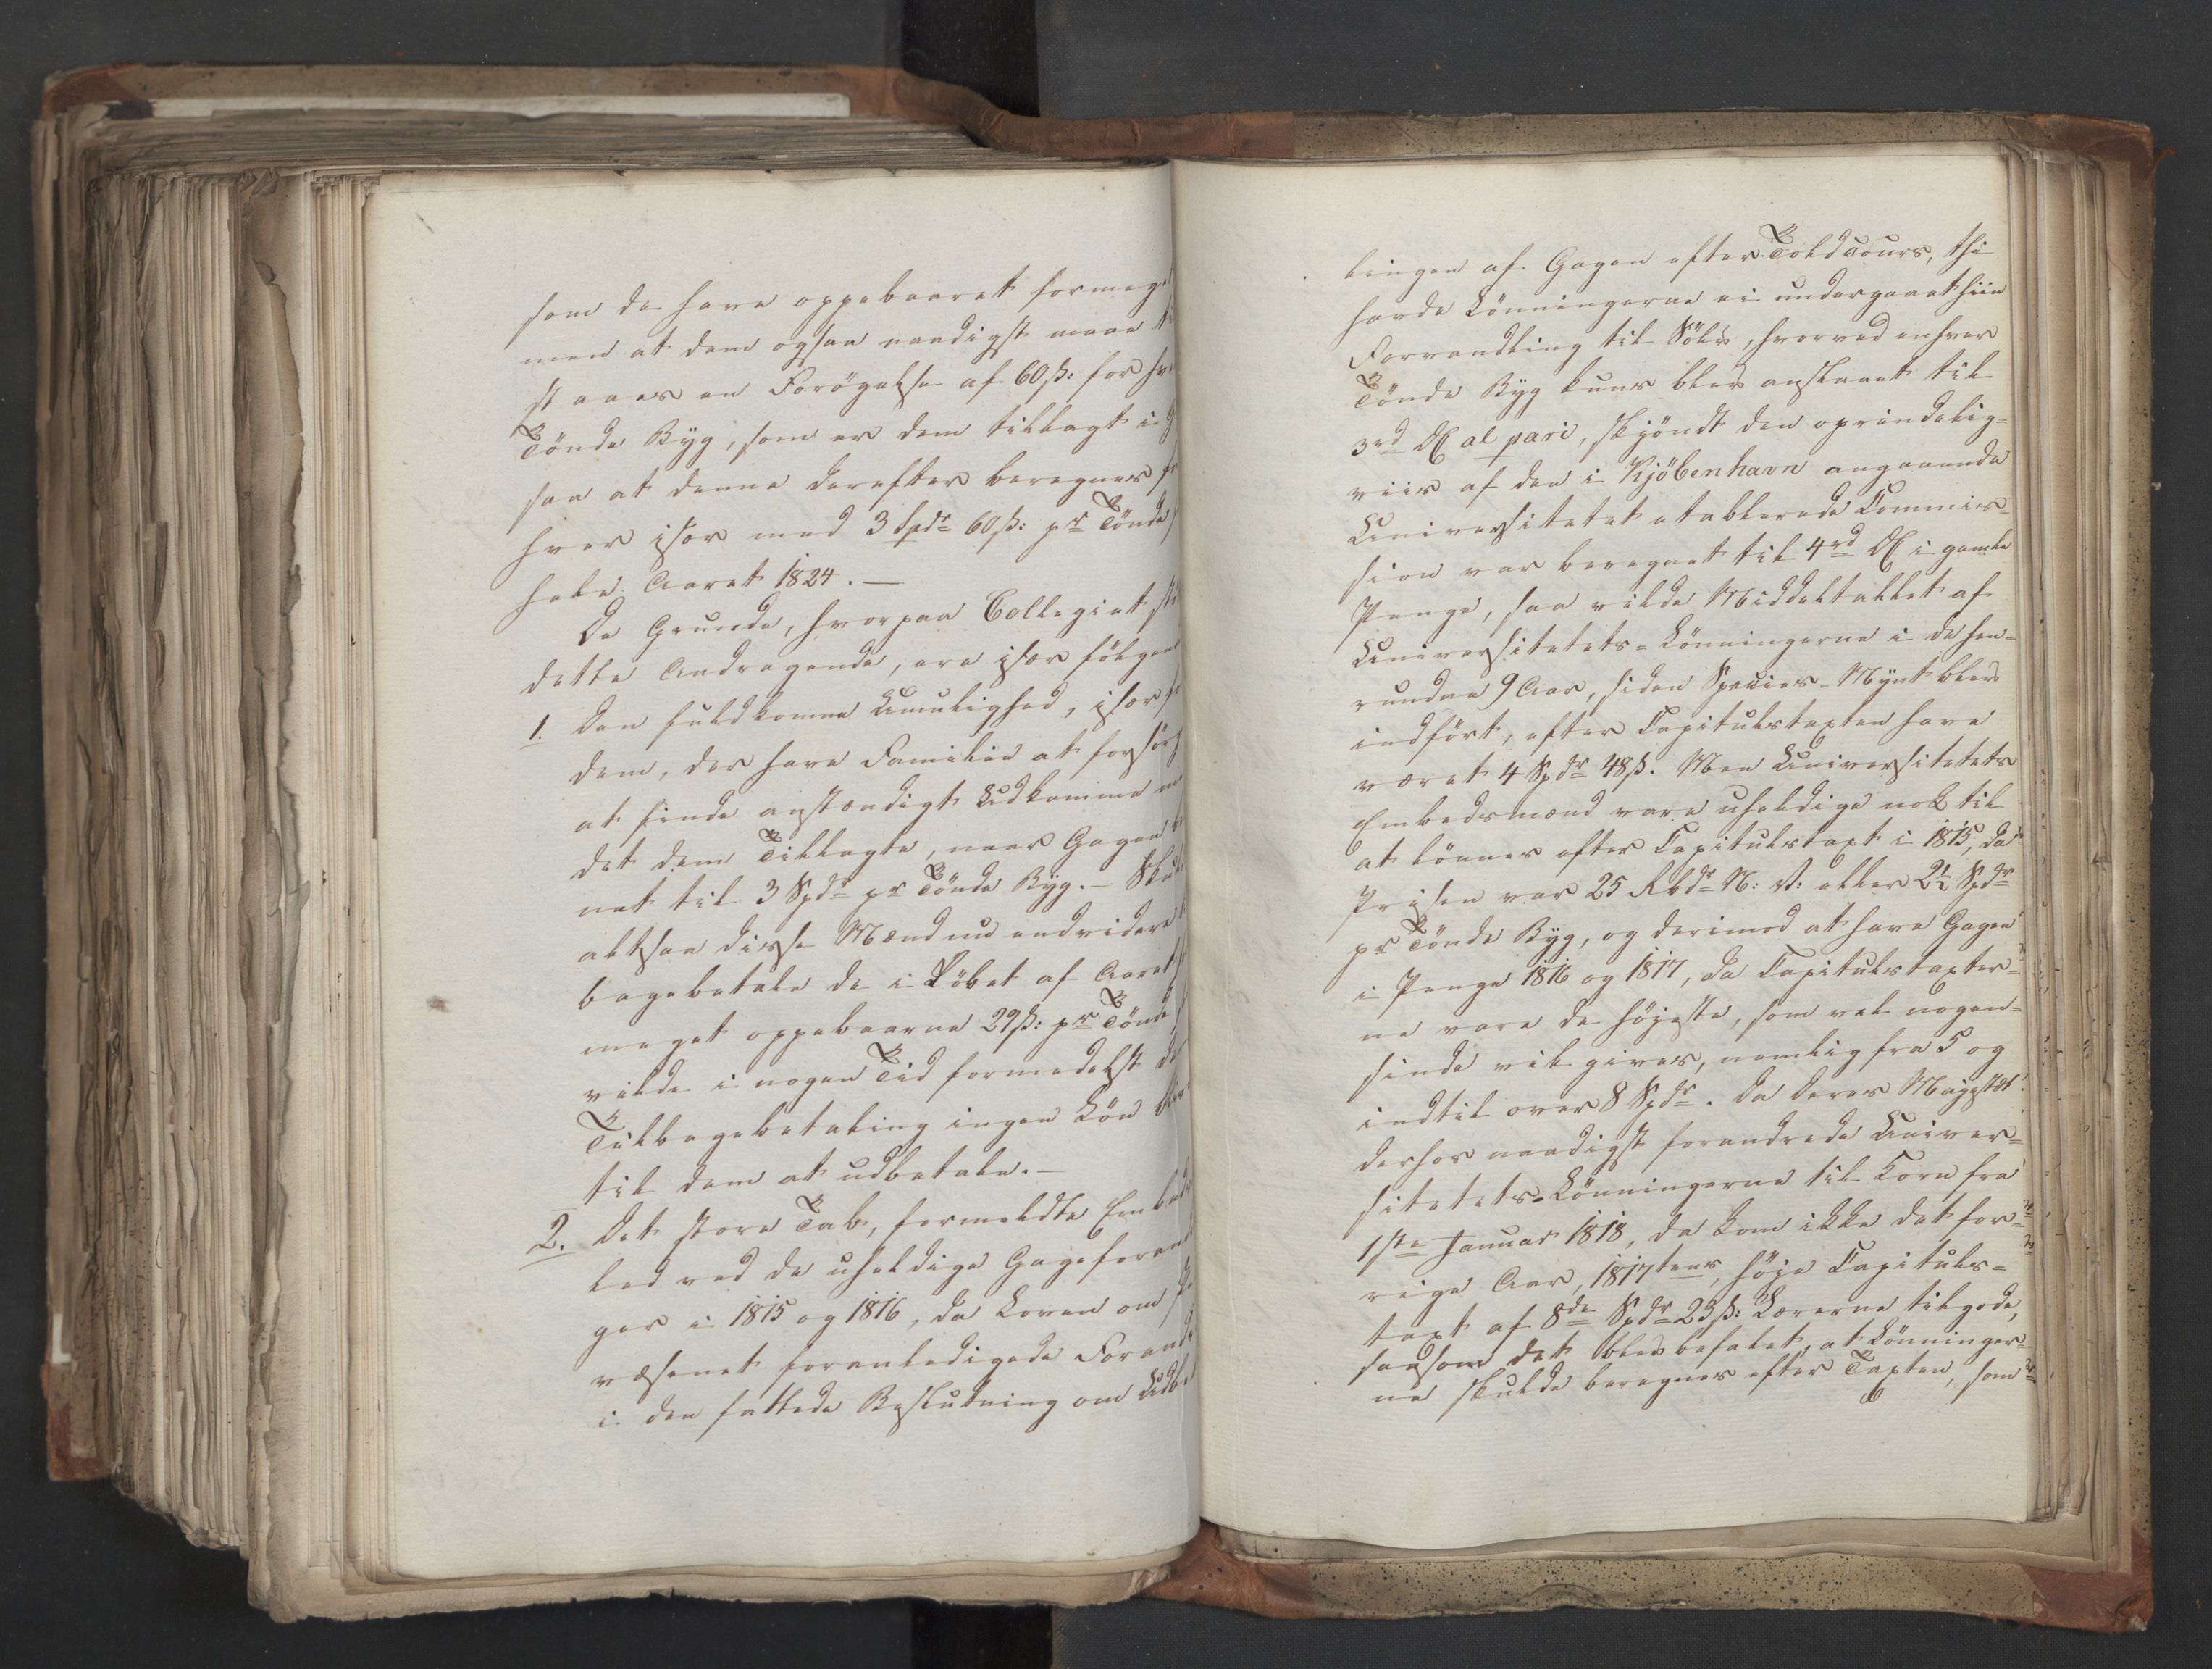 som de have oppebaaret formeget
men at dem ogsaa naadigst maae
staaes en Forögelse af 60 ß: for
Tönde Byg, som er dem tillagt i
saa at denne derefter beregnes
hver især med 3 Spdr 60 ß: pr Tönde
hele Aaret 1824. —
De Grunde, hvorpaa Collegiet
dette Andragende, ere især fölgende
1. Den fuldkomne Umulighed, især
dem, der have Familie at forsörge
at finde anstændigt Udkomme
det dem Tillagte, naar Gagen
net til 3 Spdr pr Tönde Byg. —
altsaa disse Mænd nu endvidere
bagebetale de i Löbet af Aaret
meget oppebaarne 29 ß: pr Tönde
vilde i nogen Tid formedelst
Tilbagebetaling ingen Lön
til dem at udbetale. —
2. Det store Tab, formeldte
led ved de uheldige
ger i 1815 og 1816, da Loven om
væsenet foranledigede
i den fattede Beslutning om
lingen af Gagen efter Toldcours, thi
havde Lönningerne ei undergaaet hiin
Forvandling til Sölv, hvorved enhver
Tönde Byg kuns blev anslaaet til
3rd al pari, skjöndt den oprindelig-
viis af den i Kjöbenhavn angaaende
Universitetet etablerede Commis-
sion var beregnet til 4rd i gamle
Penge, saa vilde Middeltallet af
Universitetets-Lönningerne i de hen-
rundne 9 Aar, siden Species-Mynt blev
indfört, efter Capitulstaxten have
været 4 Spdr 48 ß. Men Universitetets
Embedsmænd vare uheldige nok til
at lönnes efter Capitulstaxt i 1815, da
Prisen var 25 Rbdr N: V: eller 2½ Spdr
pr Tönde Byg, og derimod at have Gagen
i Penge 1816 og 1817, da Capitulstaxter-
ne vare de höieste, som vel nogen-
sinde vil gives, nemlig fra 5 og
indtil over 8 Spdr. Da Deres Mayestæt
derhos naadigst forandrede Univer-
sitetets-Lönningerne til Korn fra
1ste Januar 1818, da kom ikke det for-
rige Aar, 1817tens, höje Capituls-
taxt af 8de Spdr 23 ß: Lærerne tilgode,
saasom det blev befalet, at Lönninger-
ne skulde beregnes efter Taxten, som